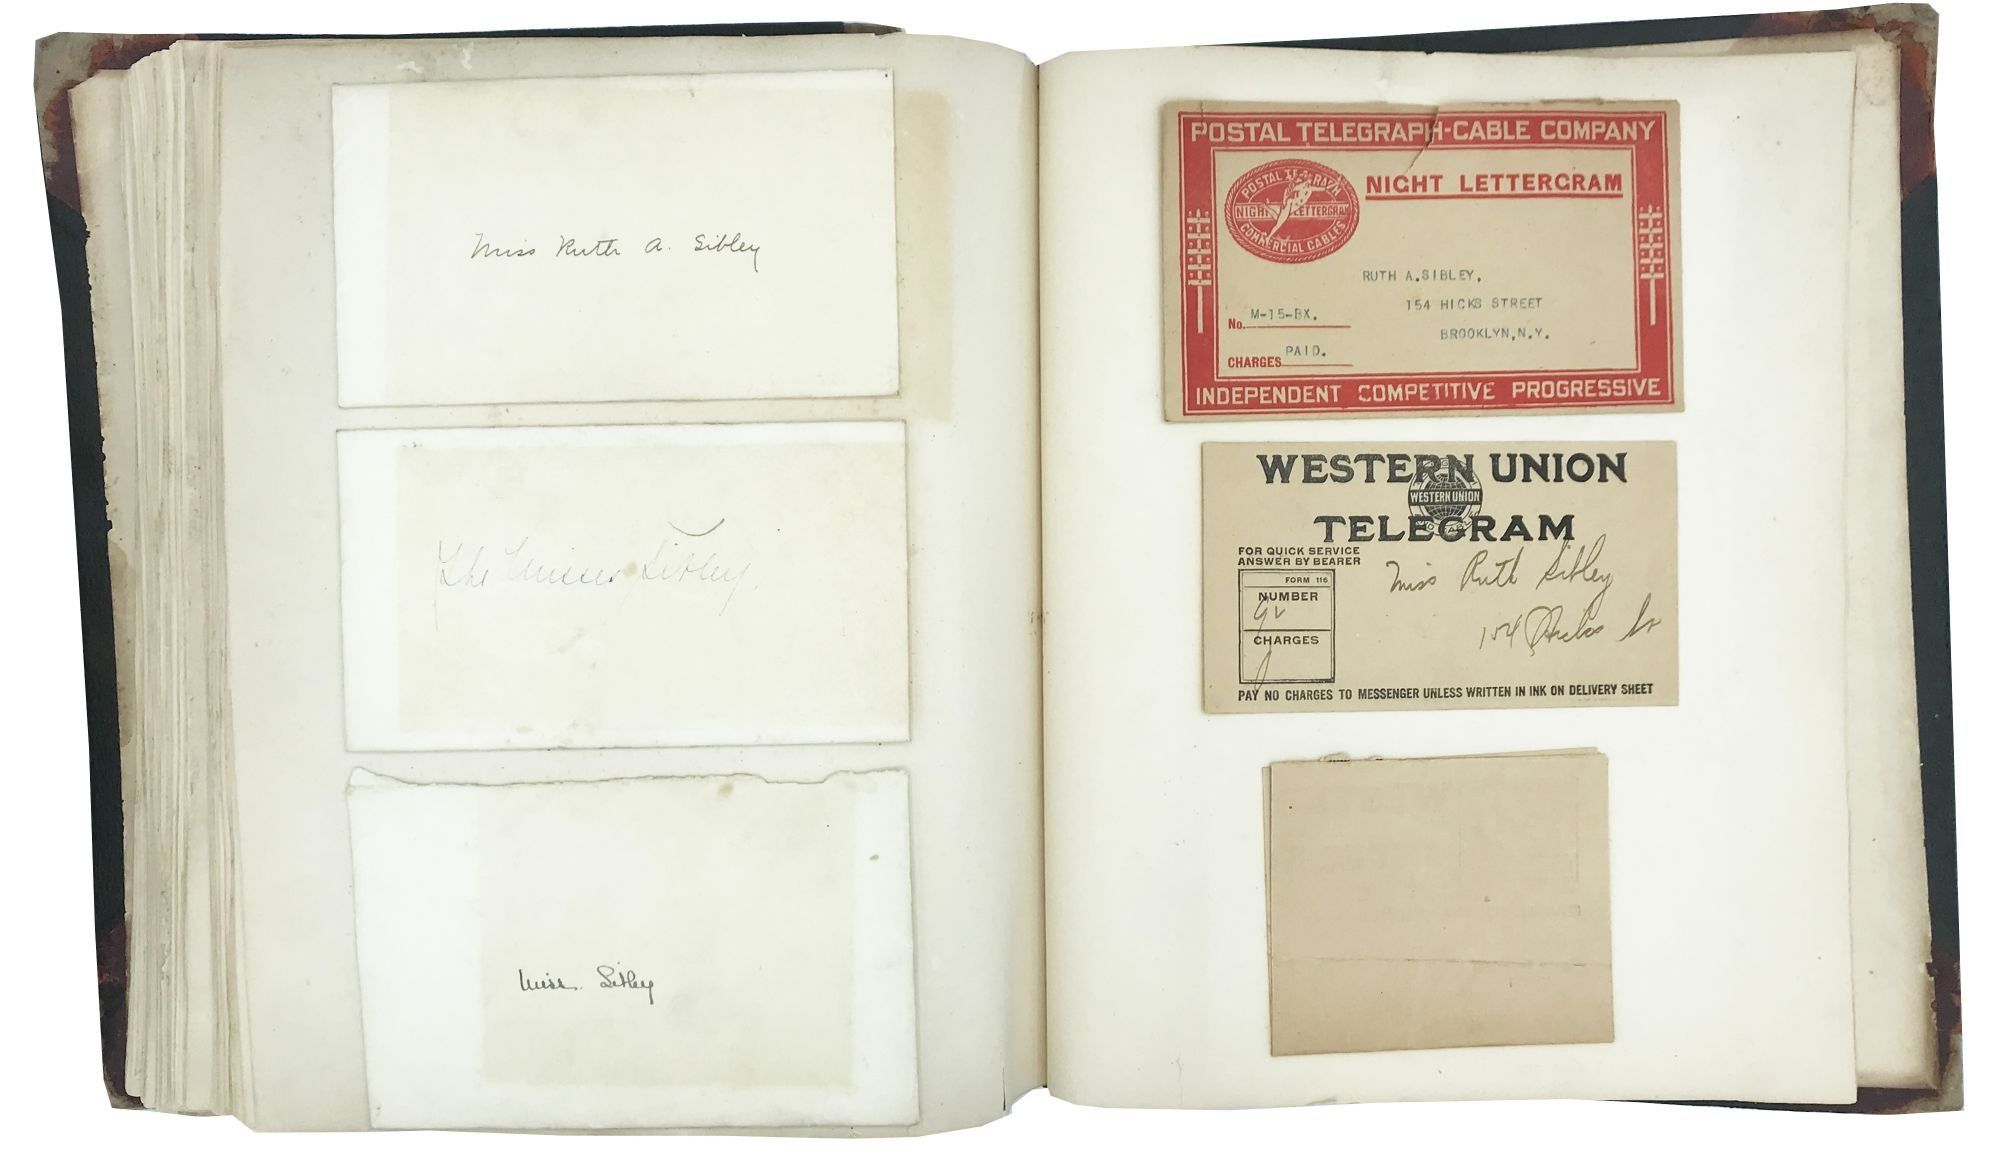 Miss Ruth A. Sibley
The Misses Sibley.
Miss. Sibley
POSTAL TELEGRAPH-CABLE COMPANY
POSTAL TELEGRAPH
NIGHT LETTERGRAM
COMMERCIAL CABLES
NIGHT LETTERGRAM
RUTH A. SIBLEY,
154 HICKS STREET
BROOKLYN, N.Y.
No. M-15-BX.
CHARGES PAID.
INDEPENDENT COMPETITIVE PROGRESSIVE
WESTERN UNION
WESTERN UNION
TELEGRAM
FOR QUICK SERVICE
ANSWER BY BEARER
Miss Ruth Sibley
154 Hicks St
FORM 116
NUMBER
CHARGES
PAY NO CHARGES TO MESSENGER UNLESS WRITTEN IN INK ON DELIVERY SHEET